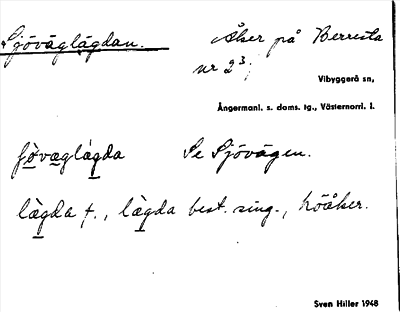 Sjöväglägdan.
Åker på Berresta
nr 2³;
Vibyggerå sn,
Ångermanl. s. doms. tg., Västernorrl. l.
fövæglàgda Se Sjövägen.
làgda f., làgda best. sing., höåker.
Sven Hiller 1948